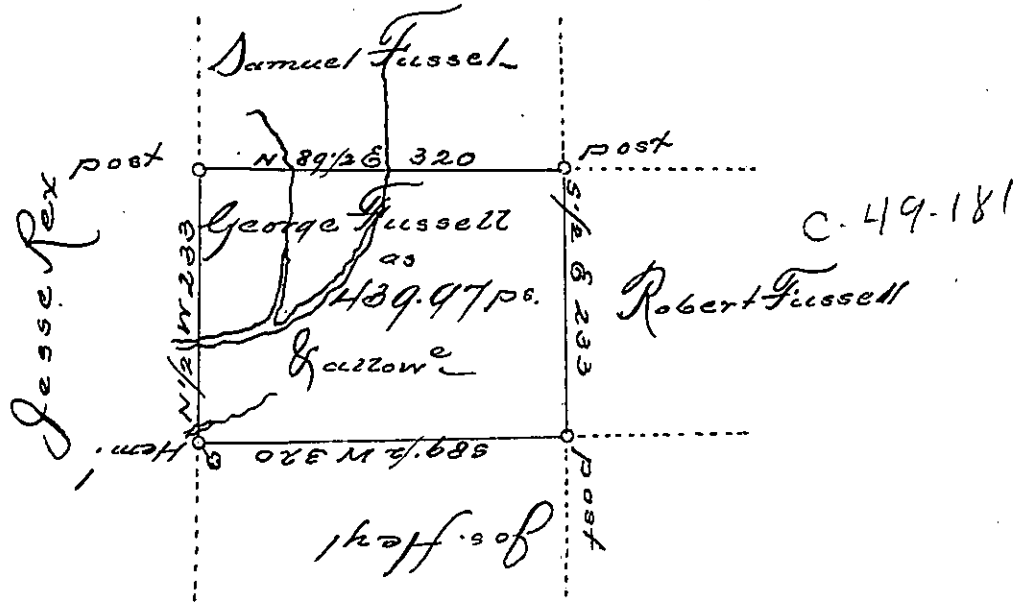 Samuel Fussel
post
N 89 1/2 E 320
post
Jesse Rex
George Fussell
as
439.97 ps.
& allowe
N 1/2 W 233
S 1/2 E 233
C. 49-181
Robert Fussell
Hem.
S 89 1/2 W 320
post
Jos. Heyl